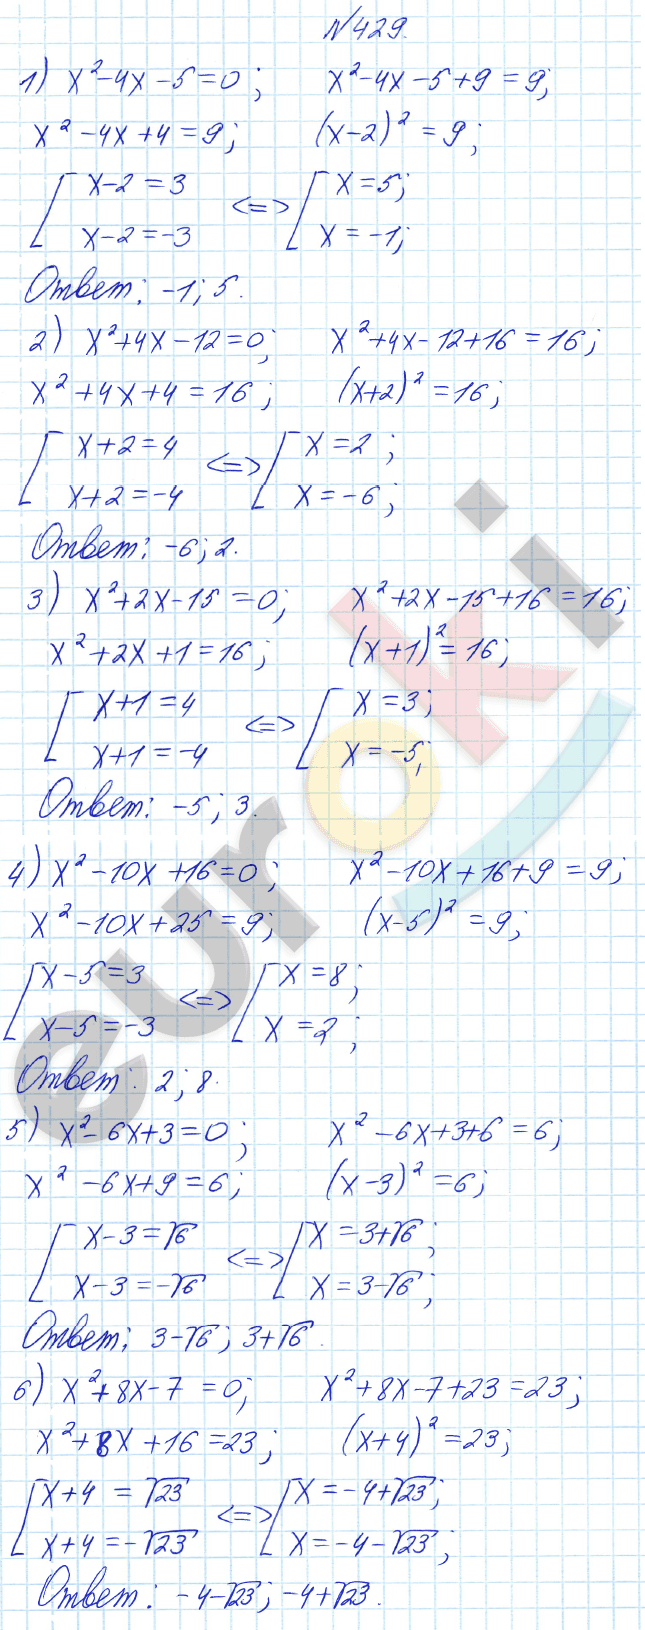 №429.
1) x²-4x-5=0; x²-4x-5+9=9;
x²-4x+4=9; (x-2)²=9;
[ x-2=3 <=> [ x=5;
x-2=-3 x=-1;
Ответ: -1; 5.
2) x²+4x-12=0; x²+4x-12+16=16;
x²+4x+4=16; (x+2)²=16;
[ x+2=4 <=> [ x=2;
x+2=-4 x=-6;
Ответ: -6; 2.
3) x²+2x-15=0; x²+2x-15+16=16;
x²+2x+1=16; (x+1)²=16;
[ x+1=4 <=> [ x=3;
x+1=-4 x=-5,
Ответ: -5; 3.
4) x²-10x+16=0; x²-10x+16+9=9;
x²-10x+25=9; (x-5)²=9;
[ x-5=3 <=> [ x=8;
x-5=-3 x=2;
Ответ: 2; 8.
5) x²-6x+3=0; x²-6x+3+6=6;
x²-6x+9=6; (x-3)²=6;
[ x-3=√6 <=> [ x=3+√6;
x-3=-√6 x=3-√6;
Ответ: 3-√6; 3+√6.
6) x²+8x-7=0; x²+8x-7+23=23;
x²+8x+16=23; (x+4)²=23;
[ x+4=√23 <=> [ x=-4+√23;
x+4=-√23 x=-4-√23;
Ответ: -4-√23; -4+√23.
euroki